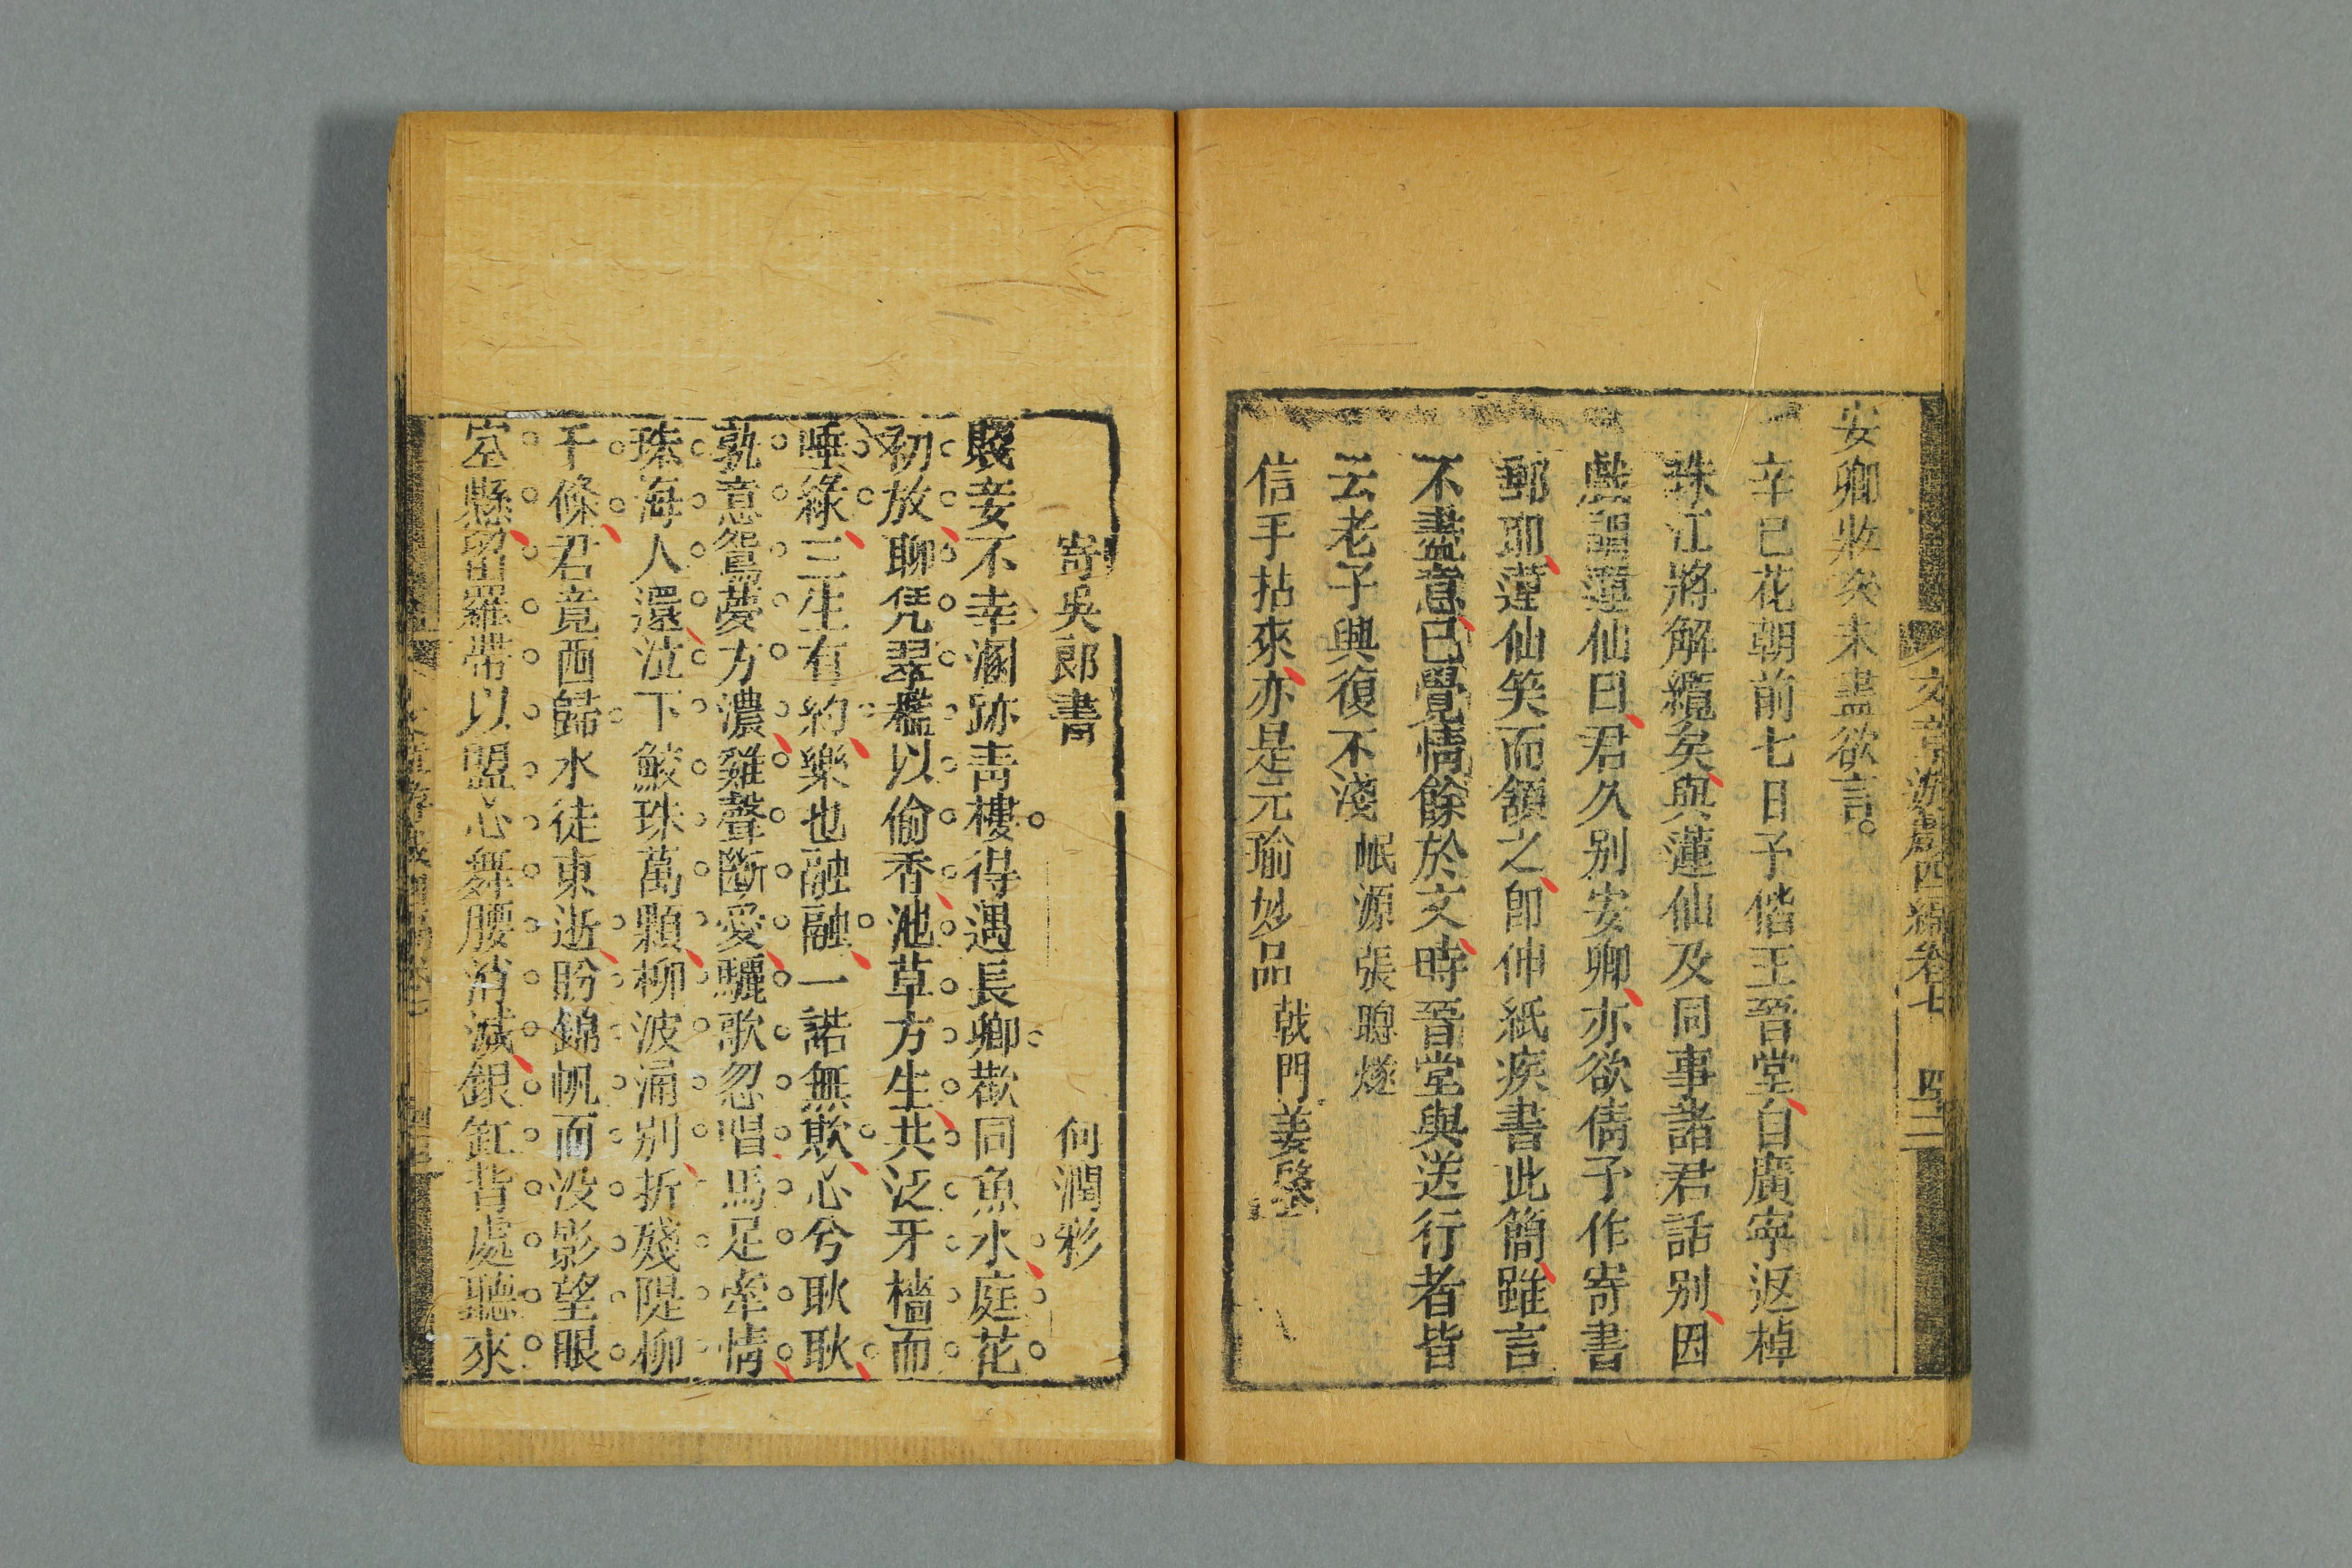 文章游戲四編卷七 四二
安卿收矣未盡欲言
辛巳花朝前七日予偕王晉堂自廣寧返棹
珠江將解纜矣與蓮仙及同事諸君話别因
戲謂蓮仙曰君久别安卿亦欲倩予作寄書
郵耶蓮仙笑而頷之卽伸紙疾書此簡雖言
不盡意已覺情餘於文時晉堂與送行者皆
云老子興復不淺 岷源張聰燧
信手拈來亦是元瑜妙品 戟門姜
寄吳郎書 何潤彩
賤妾不幸溷跡青樓得遇長卿歡同魚水庭花
初放聊凭翠檻以偷香池草方生共泛牙檣而
唾綠三生有約樂也融融一諾無欺心兮耿耿
孰意鴛夢方濃雞聲斷愛驪歌忽唱馬足牽情
珠海人還泣下鮫珠萬顆柳波涌别折殘隄柳
千條君竟西歸水徒東逝盼錦帆而没影望眼
空懸留羅帶以盟心舞腰消減銀缸背處聽來